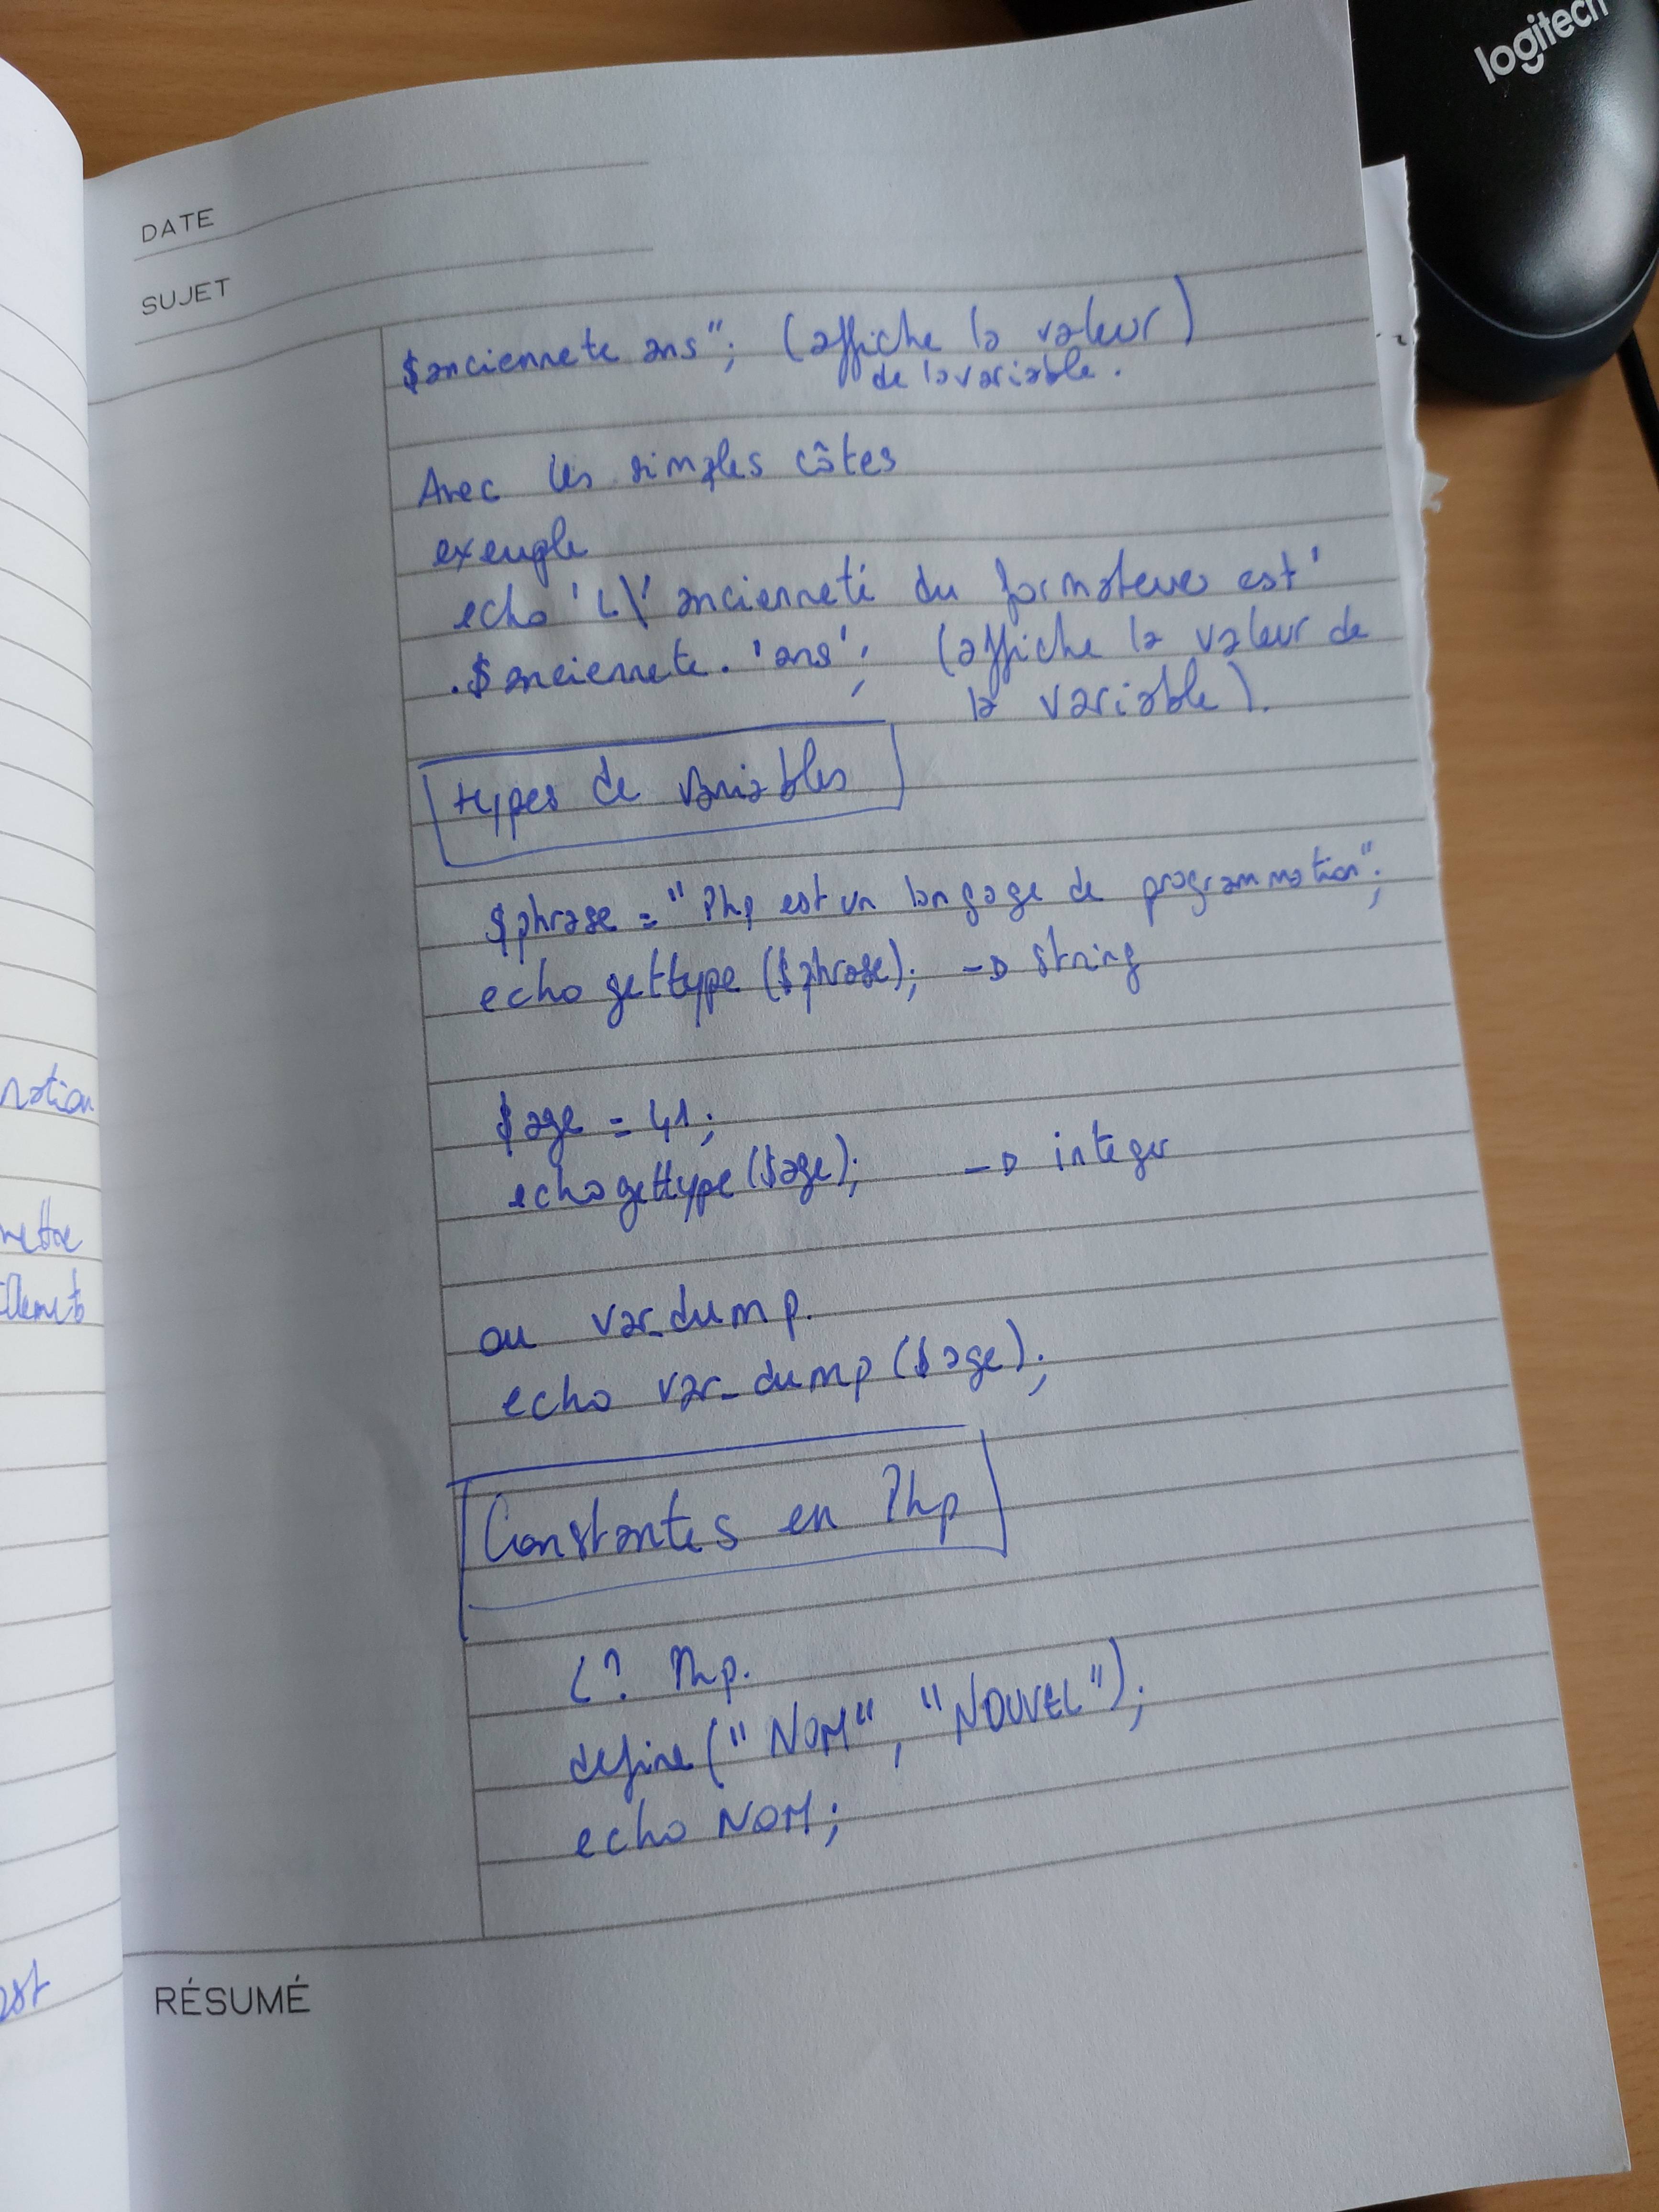 logitech
DATE
SUJET
$anciennete ans"; (affiche la valeur)
de la variable.
Avec les simples côtes
exemple
echo 'L\'ancienneté du formateur est'
.$anciennete.'ans'; (affiche la valeur de
la variable).
types de variables
$phrase = "Php est un langage de programmation";
echo gettype ($phrase); → string
$age = 41;
echo gettype ($age); → integer
ou var_dump.
echo var_dump ($age);
Constantes en Php
<? Php.
define ("NOM", "NOUVEL");
echo NOM;
RÉSUMÉ